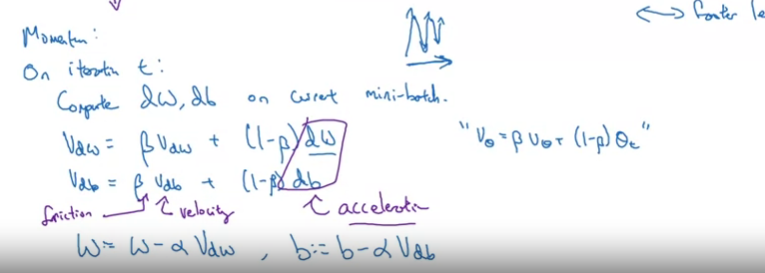 ⟷ faster le
Momentum:
On iteration t:
Compute dW, db on current mini-batch.
V_dW = β V_dW + (1-β) dW
"V_θ = β V_θ + (1-β) θ_t"
V_db = β V_db + (1-β) db
friction velocity acceleration
W := W - α V_dW , b := b - α V_db